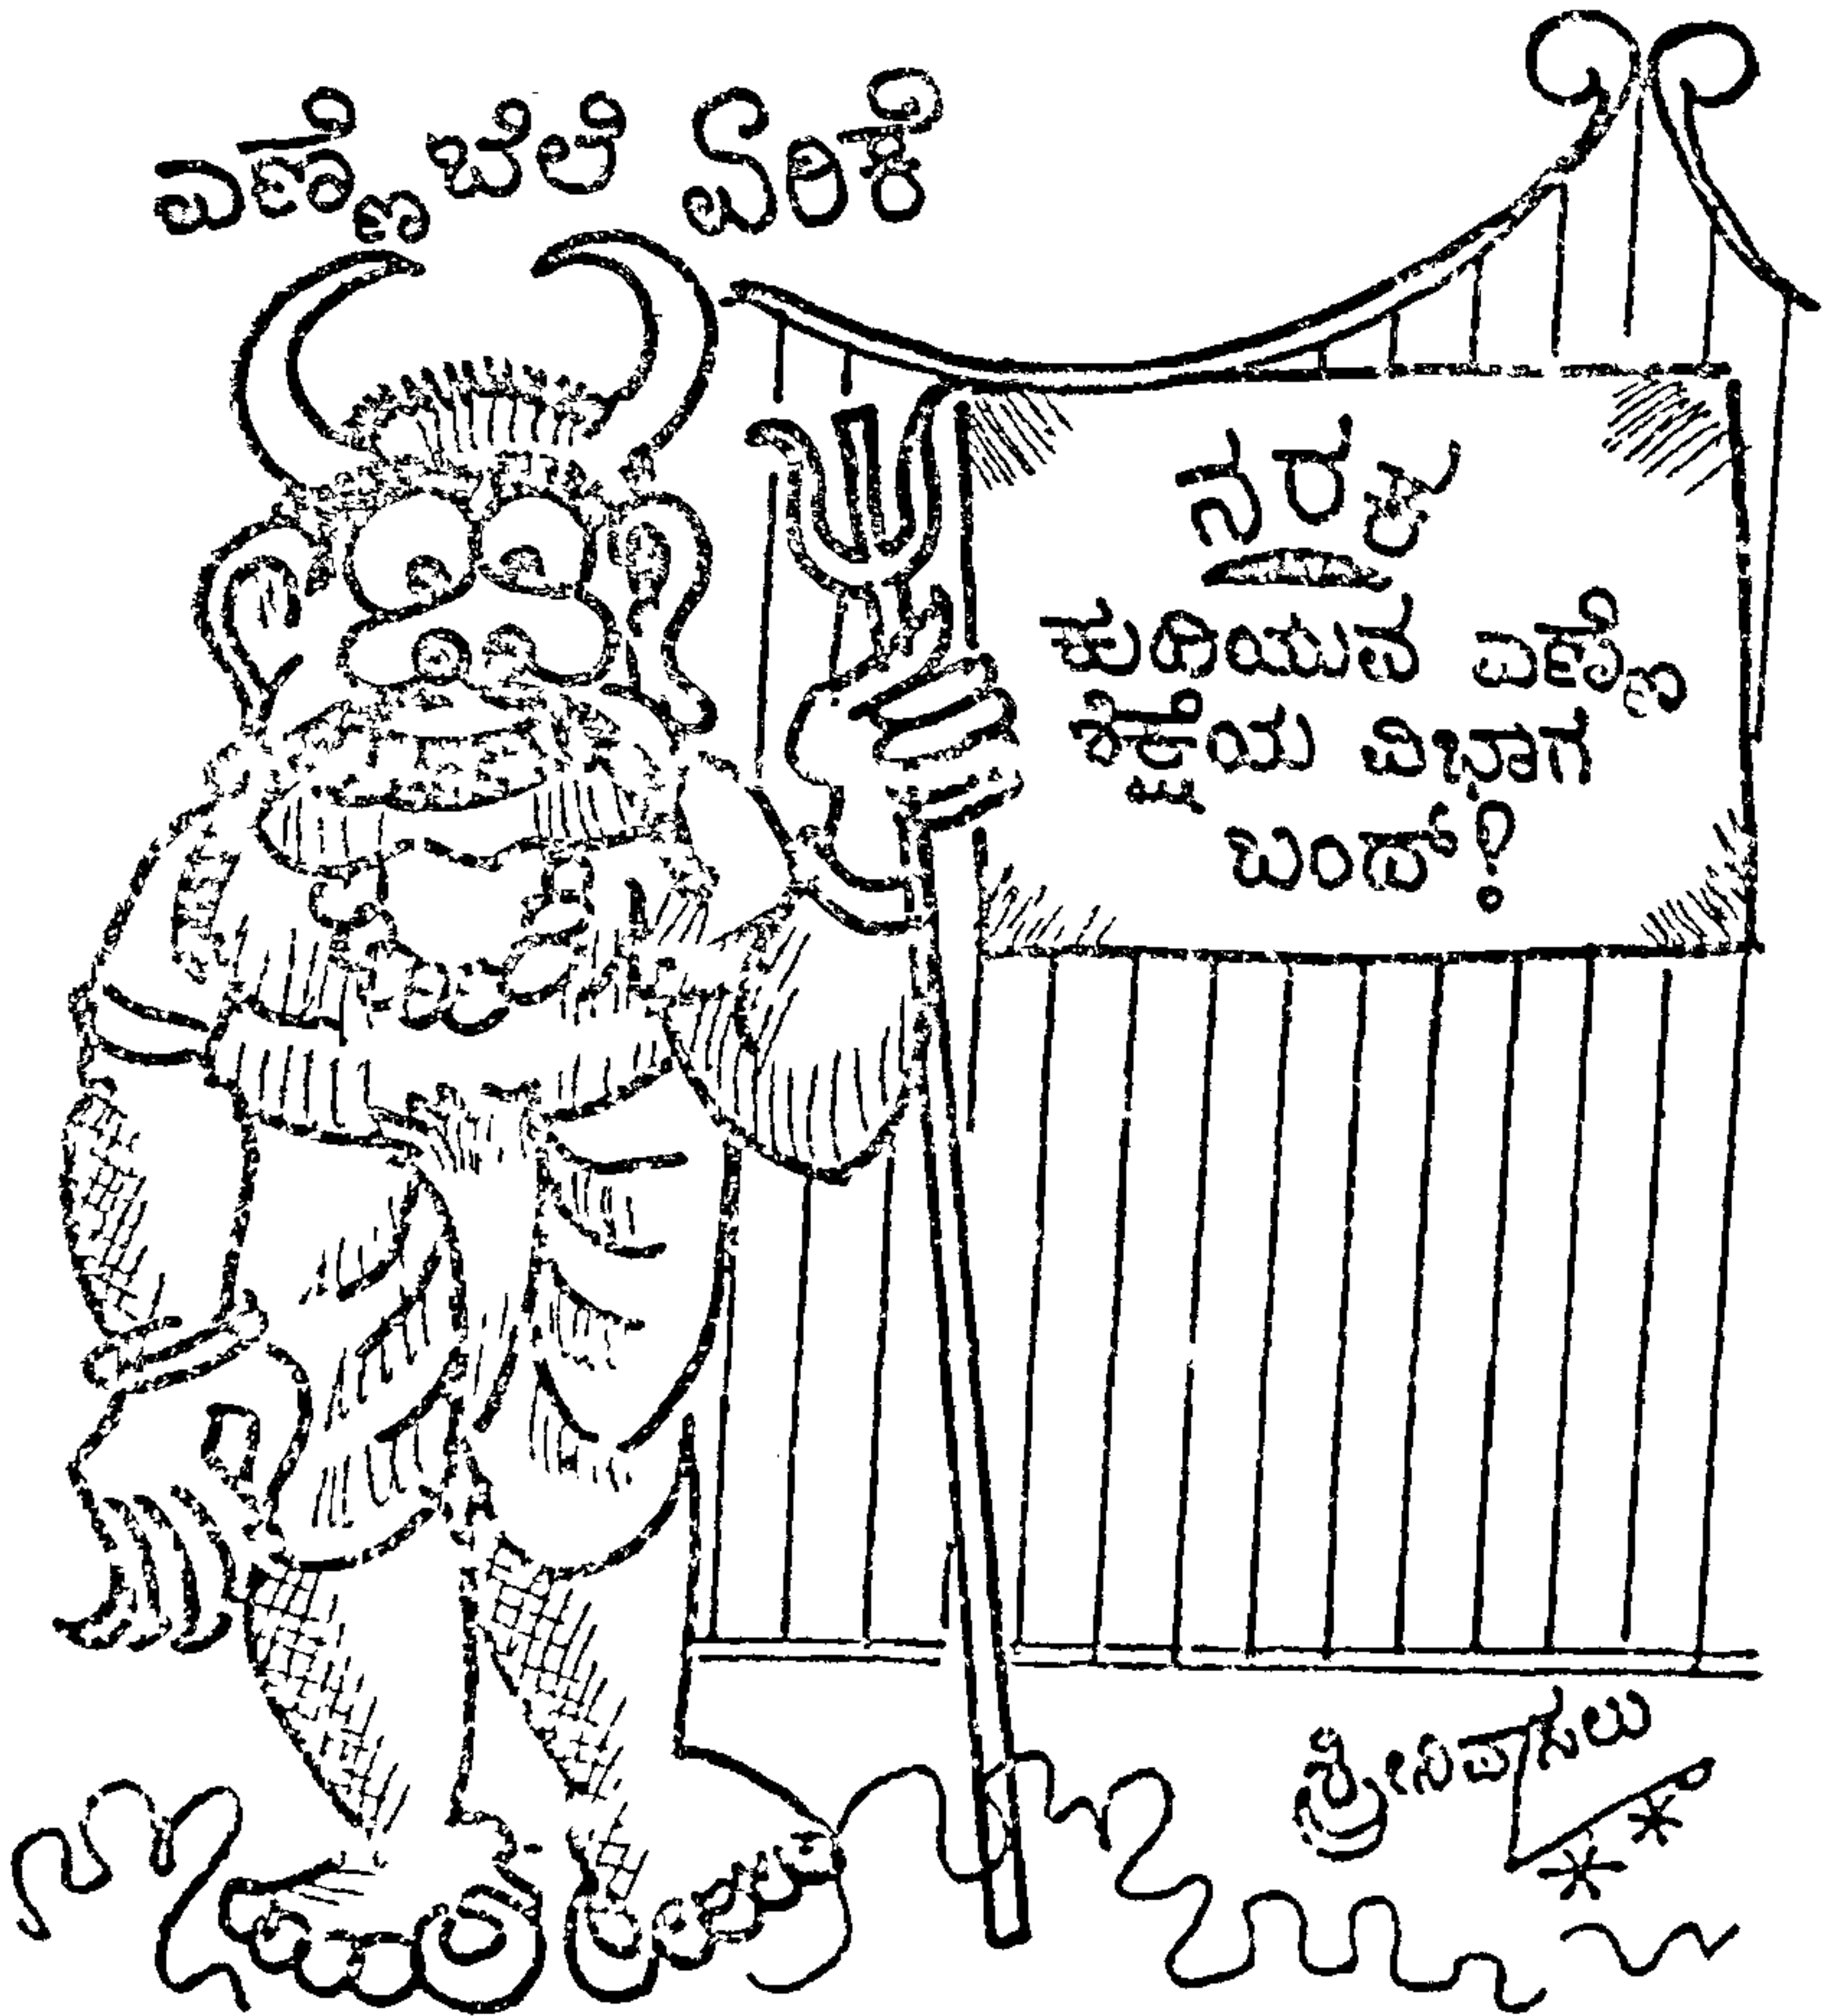 ಎಣ್ಣೆ ಬೆಲೆ ಏರಿಕೆ
ನರಕ
ಕುದಿಯುವ ಎಣ್ಣೆ
ಶಿಕ್ಷೆಯ ವಿಭಾಗ
ಬಂದ್!